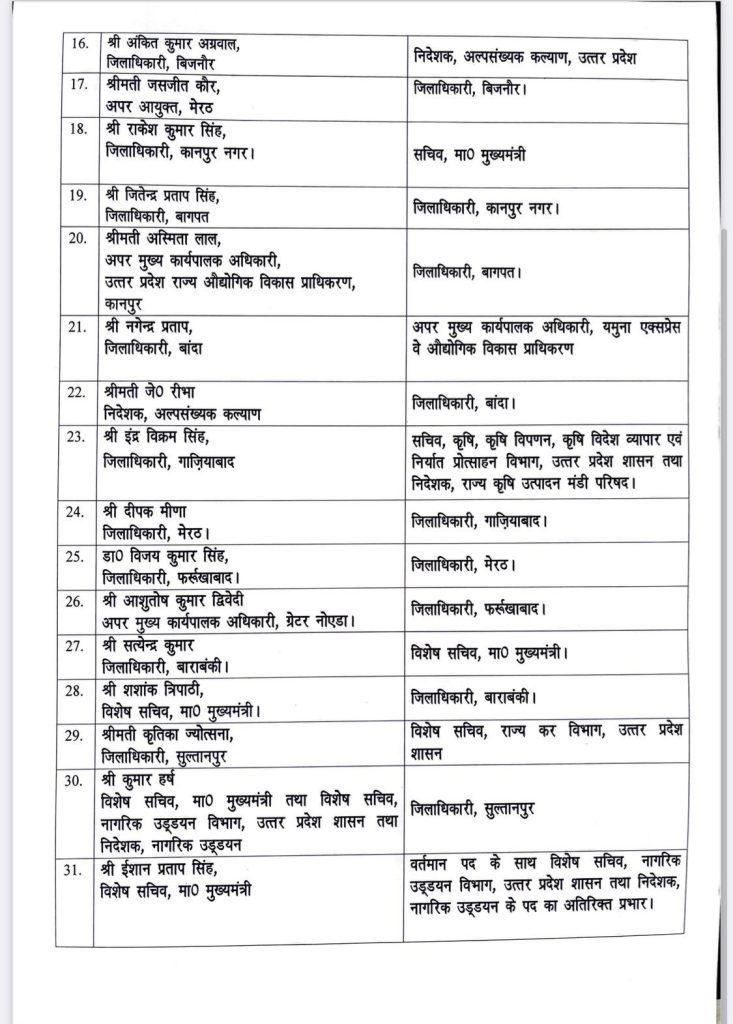 16.
श्री अंकित कुमार अग्रवाल,
जिलाधिकारी, बिजनौर
निदेशक, अल्पसंख्यक कल्याण, उत्तर प्रदेश
17.
श्रीमती जसजीत कौर,
अपर आयुक्त, मेरठ
जिलाधिकारी, बिजनौर।
18.
श्री राकेश कुमार सिंह,
जिलाधिकारी, कानपुर नगर।
सचिव, मा0 मुख्यमंत्री
19.
श्री जितेन्द्र प्रताप सिंह,
जिलाधिकारी, बागपत
जिलाधिकारी, कानपुर नगर।
20.
श्रीमती अस्मिता लाल,
अपर मुख्य कार्यपालक अधिकारी,
उत्तर प्रदेश राज्य औद्योगिक विकास प्राधिकरण,
कानपुर
जिलाधिकारी, बागपत।
21.
श्री नगेन्द्र प्रताप,
जिलाधिकारी, बांदा
अपर मुख्य कार्यपालक अधिकारी, यमुना एक्सप्रेस
वे औद्योगिक विकास प्राधिकरण
22.
श्रीमती जे0 रीभा
निदेशक, अल्पसंख्यक कल्याण
जिलाधिकारी, बांदा।
23.
श्री इंद्र विक्रम सिंह,
जिलाधिकारी, गाज़ियाबाद
सचिव, कृषि, कृषि विपणन, कृषि विदेश व्यापार एवं
निर्यात प्रोत्साहन विभाग, उत्तर प्रदेश शासन तथा
निदेशक, राज्य कृषि उत्पादन मंडी परिषद।
24.
श्री दीपक मीणा
जिलाधिकारी, मेरठ।
जिलाधिकारी, गाज़ियाबाद।
25.
डा0 विजय कुमार सिंह,
जिलाधिकारी, फर्रूखाबाद।
जिलाधिकारी, मेरठ।
26.
श्री आशुतोष कुमार द्विवेदी
अपर मुख्य कार्यपालक अधिकारी, ग्रेटर नोएडा।
जिलाधिकारी, फर्रूखाबाद।
27.
श्री सत्येन्द्र कुमार
जिलाधिकारी, बाराबंकी।
विशेष सचिव, मा0 मुख्यमंत्री।
28.
श्री शशांक त्रिपाठी,
विशेष सचिव, मा0 मुख्यमंत्री।
जिलाधिकारी, बाराबंकी।
29.
श्रीमती कृतिका ज्योत्सना,
जिलाधिकारी, सुल्तानपुर
विशेष सचिव, राज्य कर विभाग, उत्तर प्रदेश
शासन
30.
श्री कुमार हर्ष
विशेष सचिव, मा0 मुख्यमंत्री तथा विशेष सचिव,
नागरिक उड्डयन विभाग, उत्तर प्रदेश शासन तथा
निदेशक, नागरिक उड्डयन
जिलाधिकारी, सुल्तानपुर
31.
श्री ईशान प्रताप सिंह,
विशेष सचिव, मा0 मुख्यमंत्री
वर्तमान पद के साथ विशेष सचिव, नागरिक
उड्डयन विभाग, उत्तर प्रदेश शासन तथा निदेशक,
नागरिक उड्डयन के पद का अतिरिक्त प्रभार।